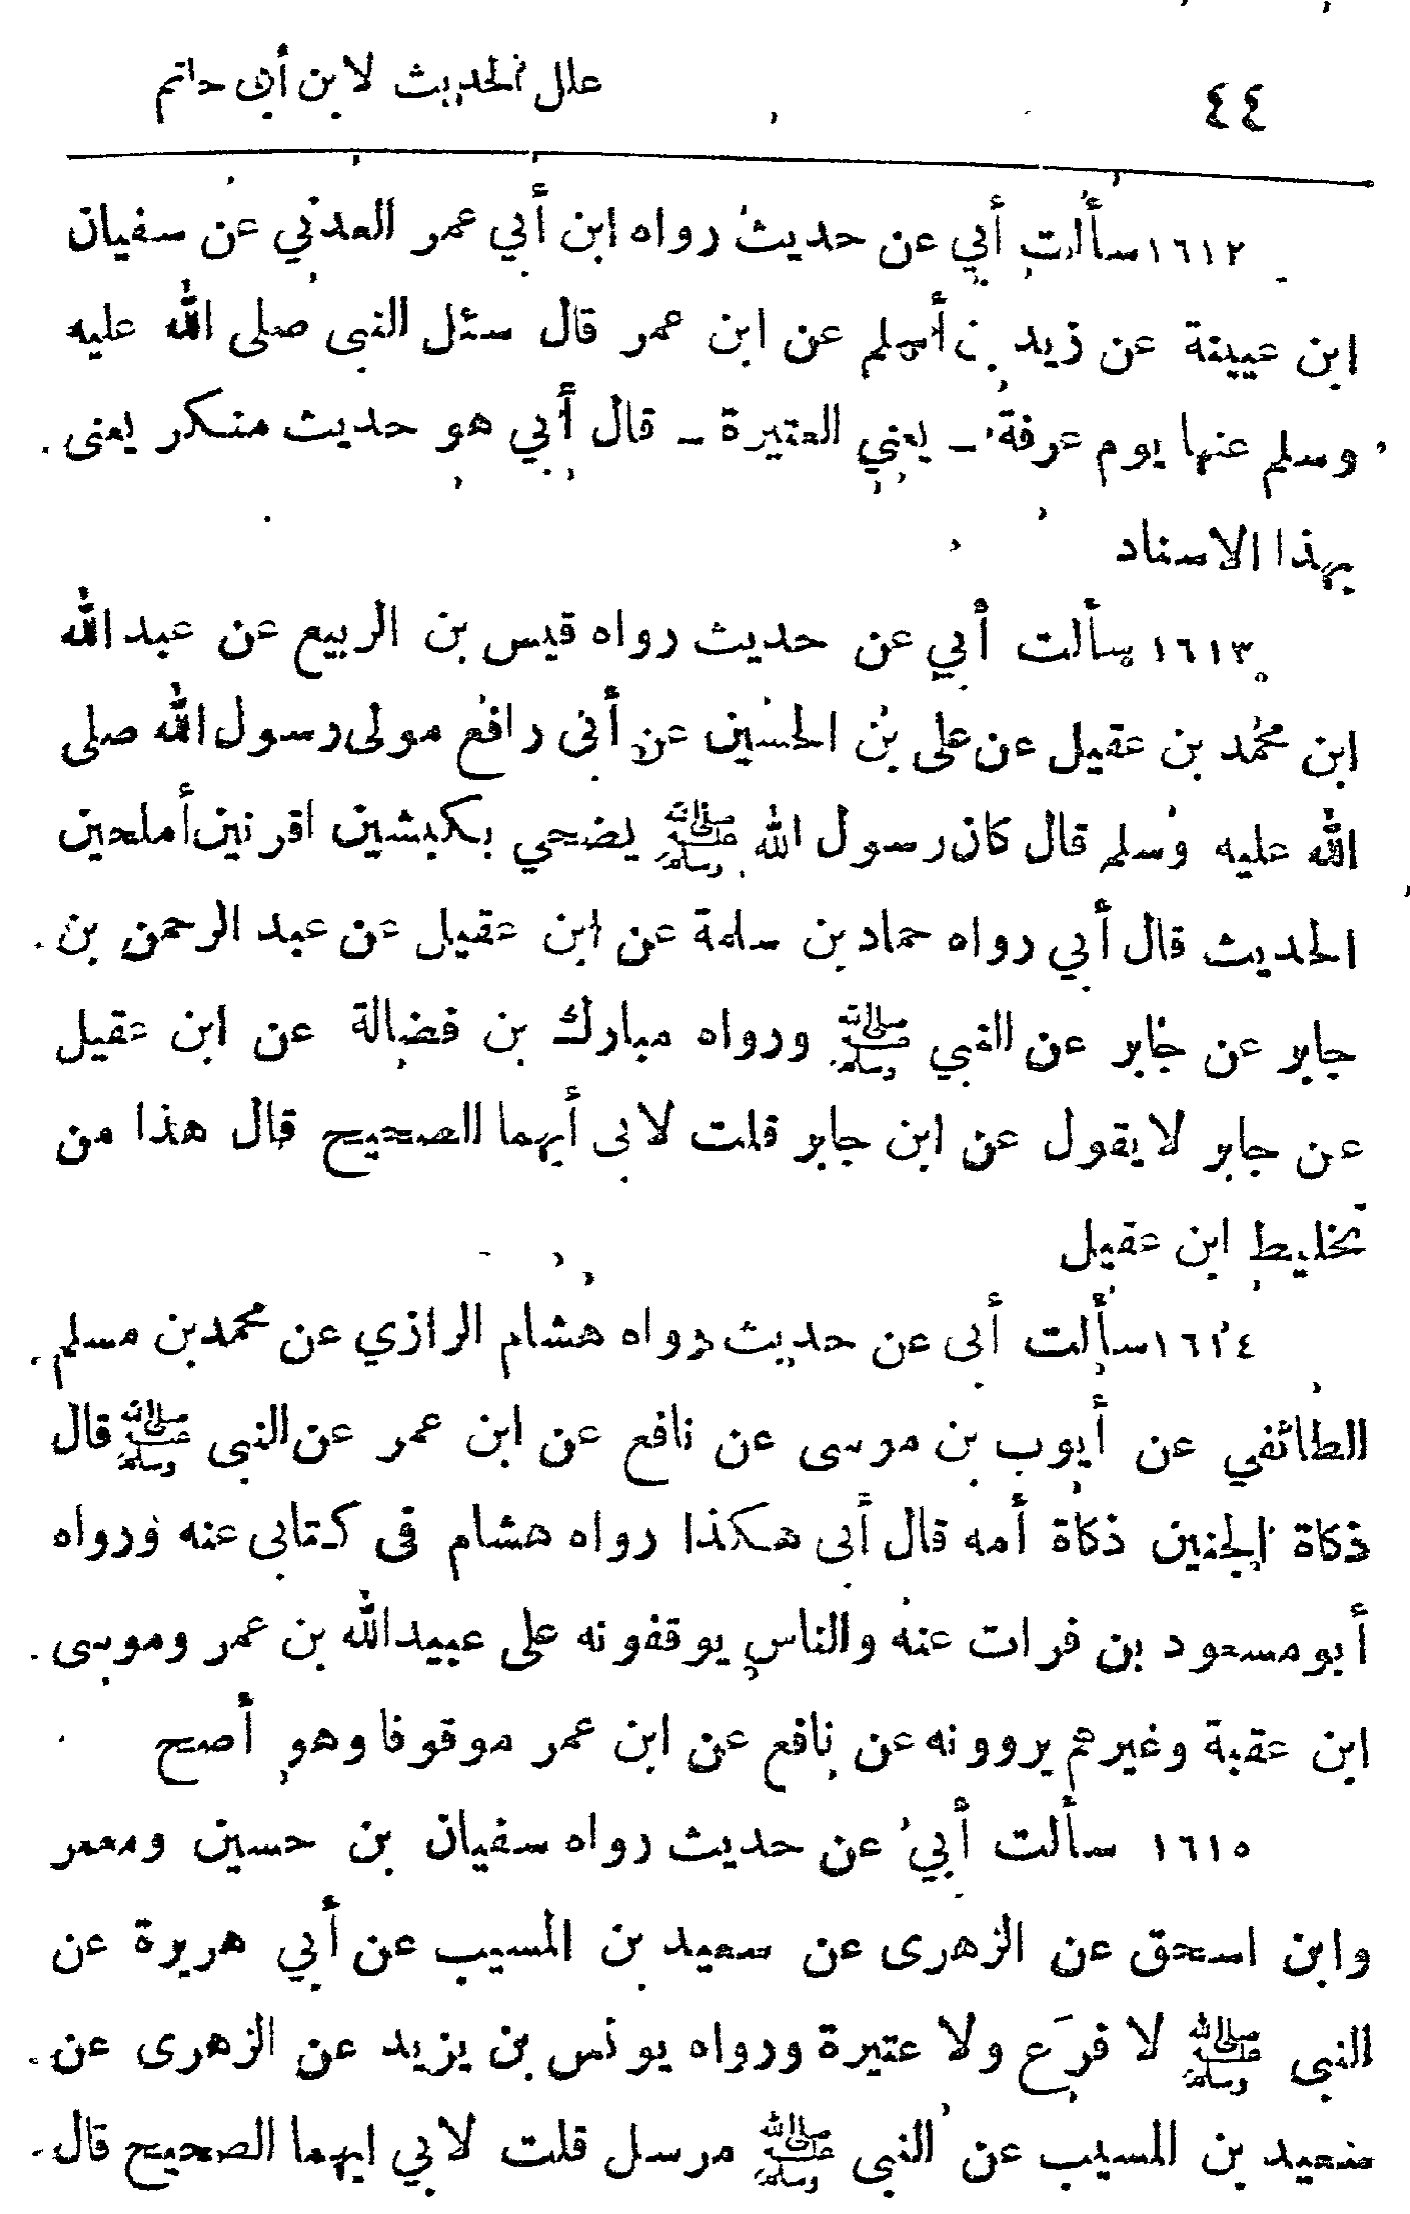 ٤٤
علل الحديث لابن أبى حاتم
١٦١٢ سألت أبي عن حديث رواه ابن أبي عمر العدني عن سفيان
ابن عيينة عن زيد بن أسلم عن ابن عمر قال سئل النبى صلى الله عليه
وسلم عنها يوم عرفة - يعني العتيرة - قال أبي هو حديث منكر يعنى
بهذا الاسناد
١٦١٣ سألت أبي عن حديث رواه قيس بن الربيع عن عبد الله
ابن محمد بن عقيل عن على بن الحسين عن أبى رافع مولى رسول الله صلى
الله عليه وسلم قال كان رسول الله ﷺ يضحي بكبشين اقرنين أملحين
الحديث قال أبي رواه حماد بن سلمة عن ابن عقيل عن عبد الرحمن بن
جابر عن جابر عن النبي ﷺ ورواه مبارك بن فضالة عن ابن عقيل
عن جابر لا يقول عن ابن جابر قلت لابى أيهما الصحيح قال هذا من
تخليط ابن عقيل
١٦١٤ سألت أبى عن حديث رواه هشام الرازي عن محمد بن مسلم
الطائفي عن أيوب بن موسى عن نافع عن ابن عمر عن النبى ﷺ قال
ذكاة الجنين ذكاة أمه قال أبى هكذا رواه هشام فى كتابى عنه ورواه
أبو مسعود بن فرات عنه والناس يوقفونه على عبيد الله بن عمر وموسى
ابن عقبة وغيرهم يروونه عن نافع عن ابن عمر موقوفا وهو أصح
١٦١٥ سألت أبي عن حديث رواه سفيان بن حسين ومعمر
وابن اسحق عن الزهرى عن سعيد بن المسيب عن أبي هريرة عن
النبى ﷺ لا فرَع ولا عتيرة ورواه يونس بن يزيد عن الزهرى عن
سعيد بن المسيب عن النبى ﷺ مرسل قلت لابي ايهما الصحيح قال